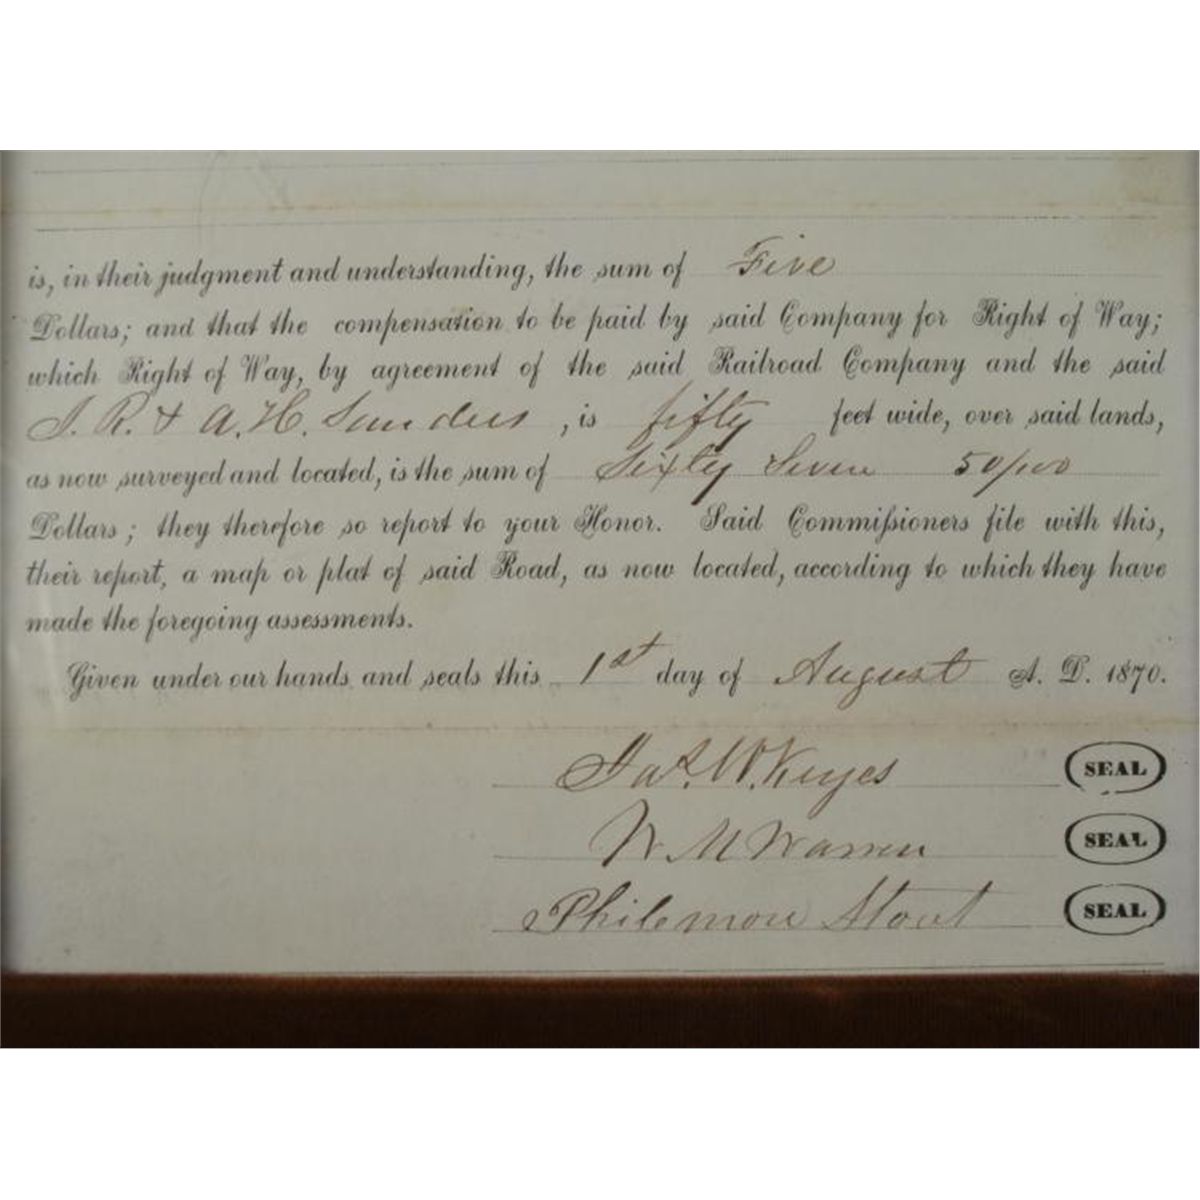 is, in their judgment and understanding, the sum of Five
Dollars; and that the compensation to be paid by said Company for Right of Way;
which Right of Way, by agreement of the said Railroad Company and the said
J. R. & A. H. Sanders, is fifty feet wide, over said lands,
as now surveyed and located, is the sum of Sixty Seven 50/100
Dollars; they therefore so report to your Honor. Said Commissioners file with this,
their report, a map or plat of said Road, as now located, according to which they have
made the foregoing assessments.
Given under our hands and seals this 1st day of August A. D. 1870.
Jas. W. Keyes SEAL
W M Warren SEAL
Philemon Stout SEAL